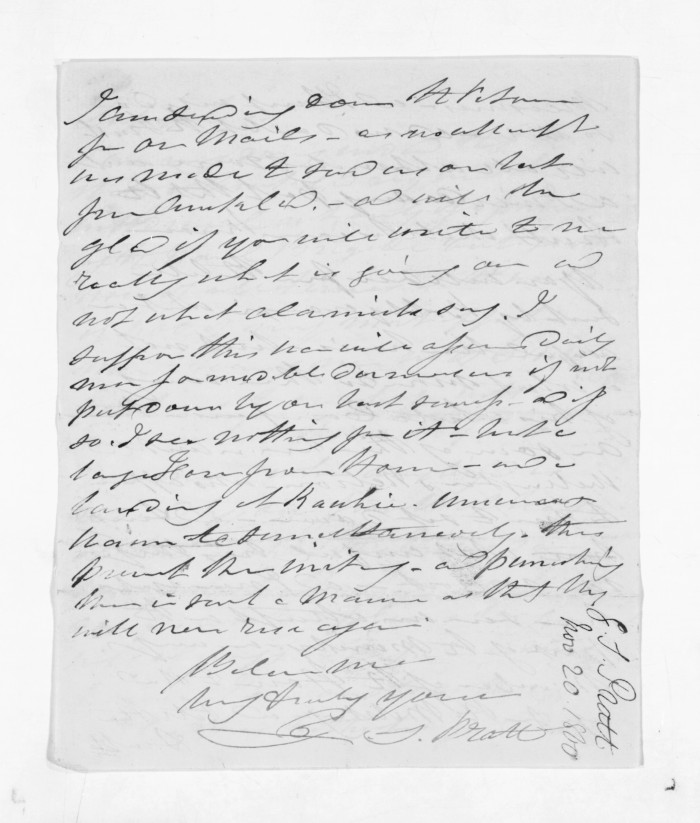 I am sending down
for our Mails - as no attempt
was made to send us our last
from Auckland. - and will be
glad if you will write to me
really what is going on and
not what alarmists say. I
suppose this war will assume daily
more formidable dimensions if not
put down by our last success and if
so. I see nothing for it - but a
large Force from Home - and a
landing at Kawhia.
simultaneously. thus
prevent their uniting - and punishing
them in such a manner as that they
will never rise again
Believe me
very truly yours
S. Pratt
S. Pratt
Nov 20 1860